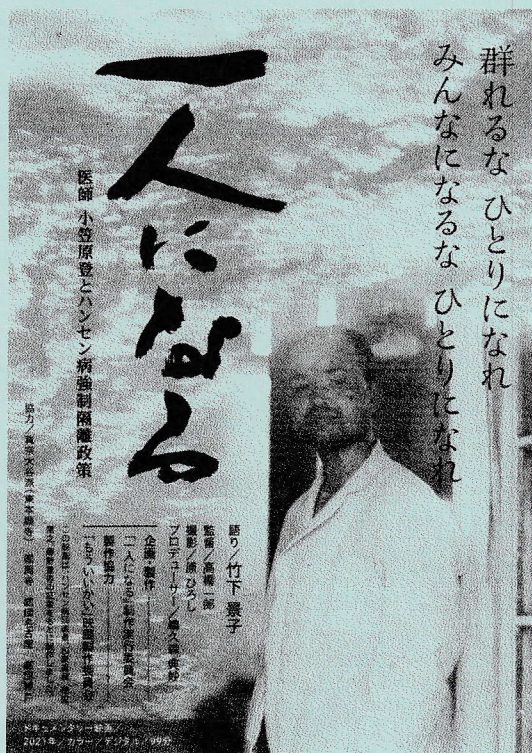 群れるな ひとりになれ
みんなになるな ひとりになれ
一人になる
医師 小笠原登とハンセン病強制隔離政策
語り/竹下景子
監督/高橋一郎
撮影/原ひろし
プロデューサー/鵜久森典妙
企画・製作
「一人になる」制作実行委員会
製作協力
「もういいかい」映画製作委員会
協力/真宗大谷派(東本願寺)
ドキュメンタリー映画/
2021年/カラー/デジタル/99分